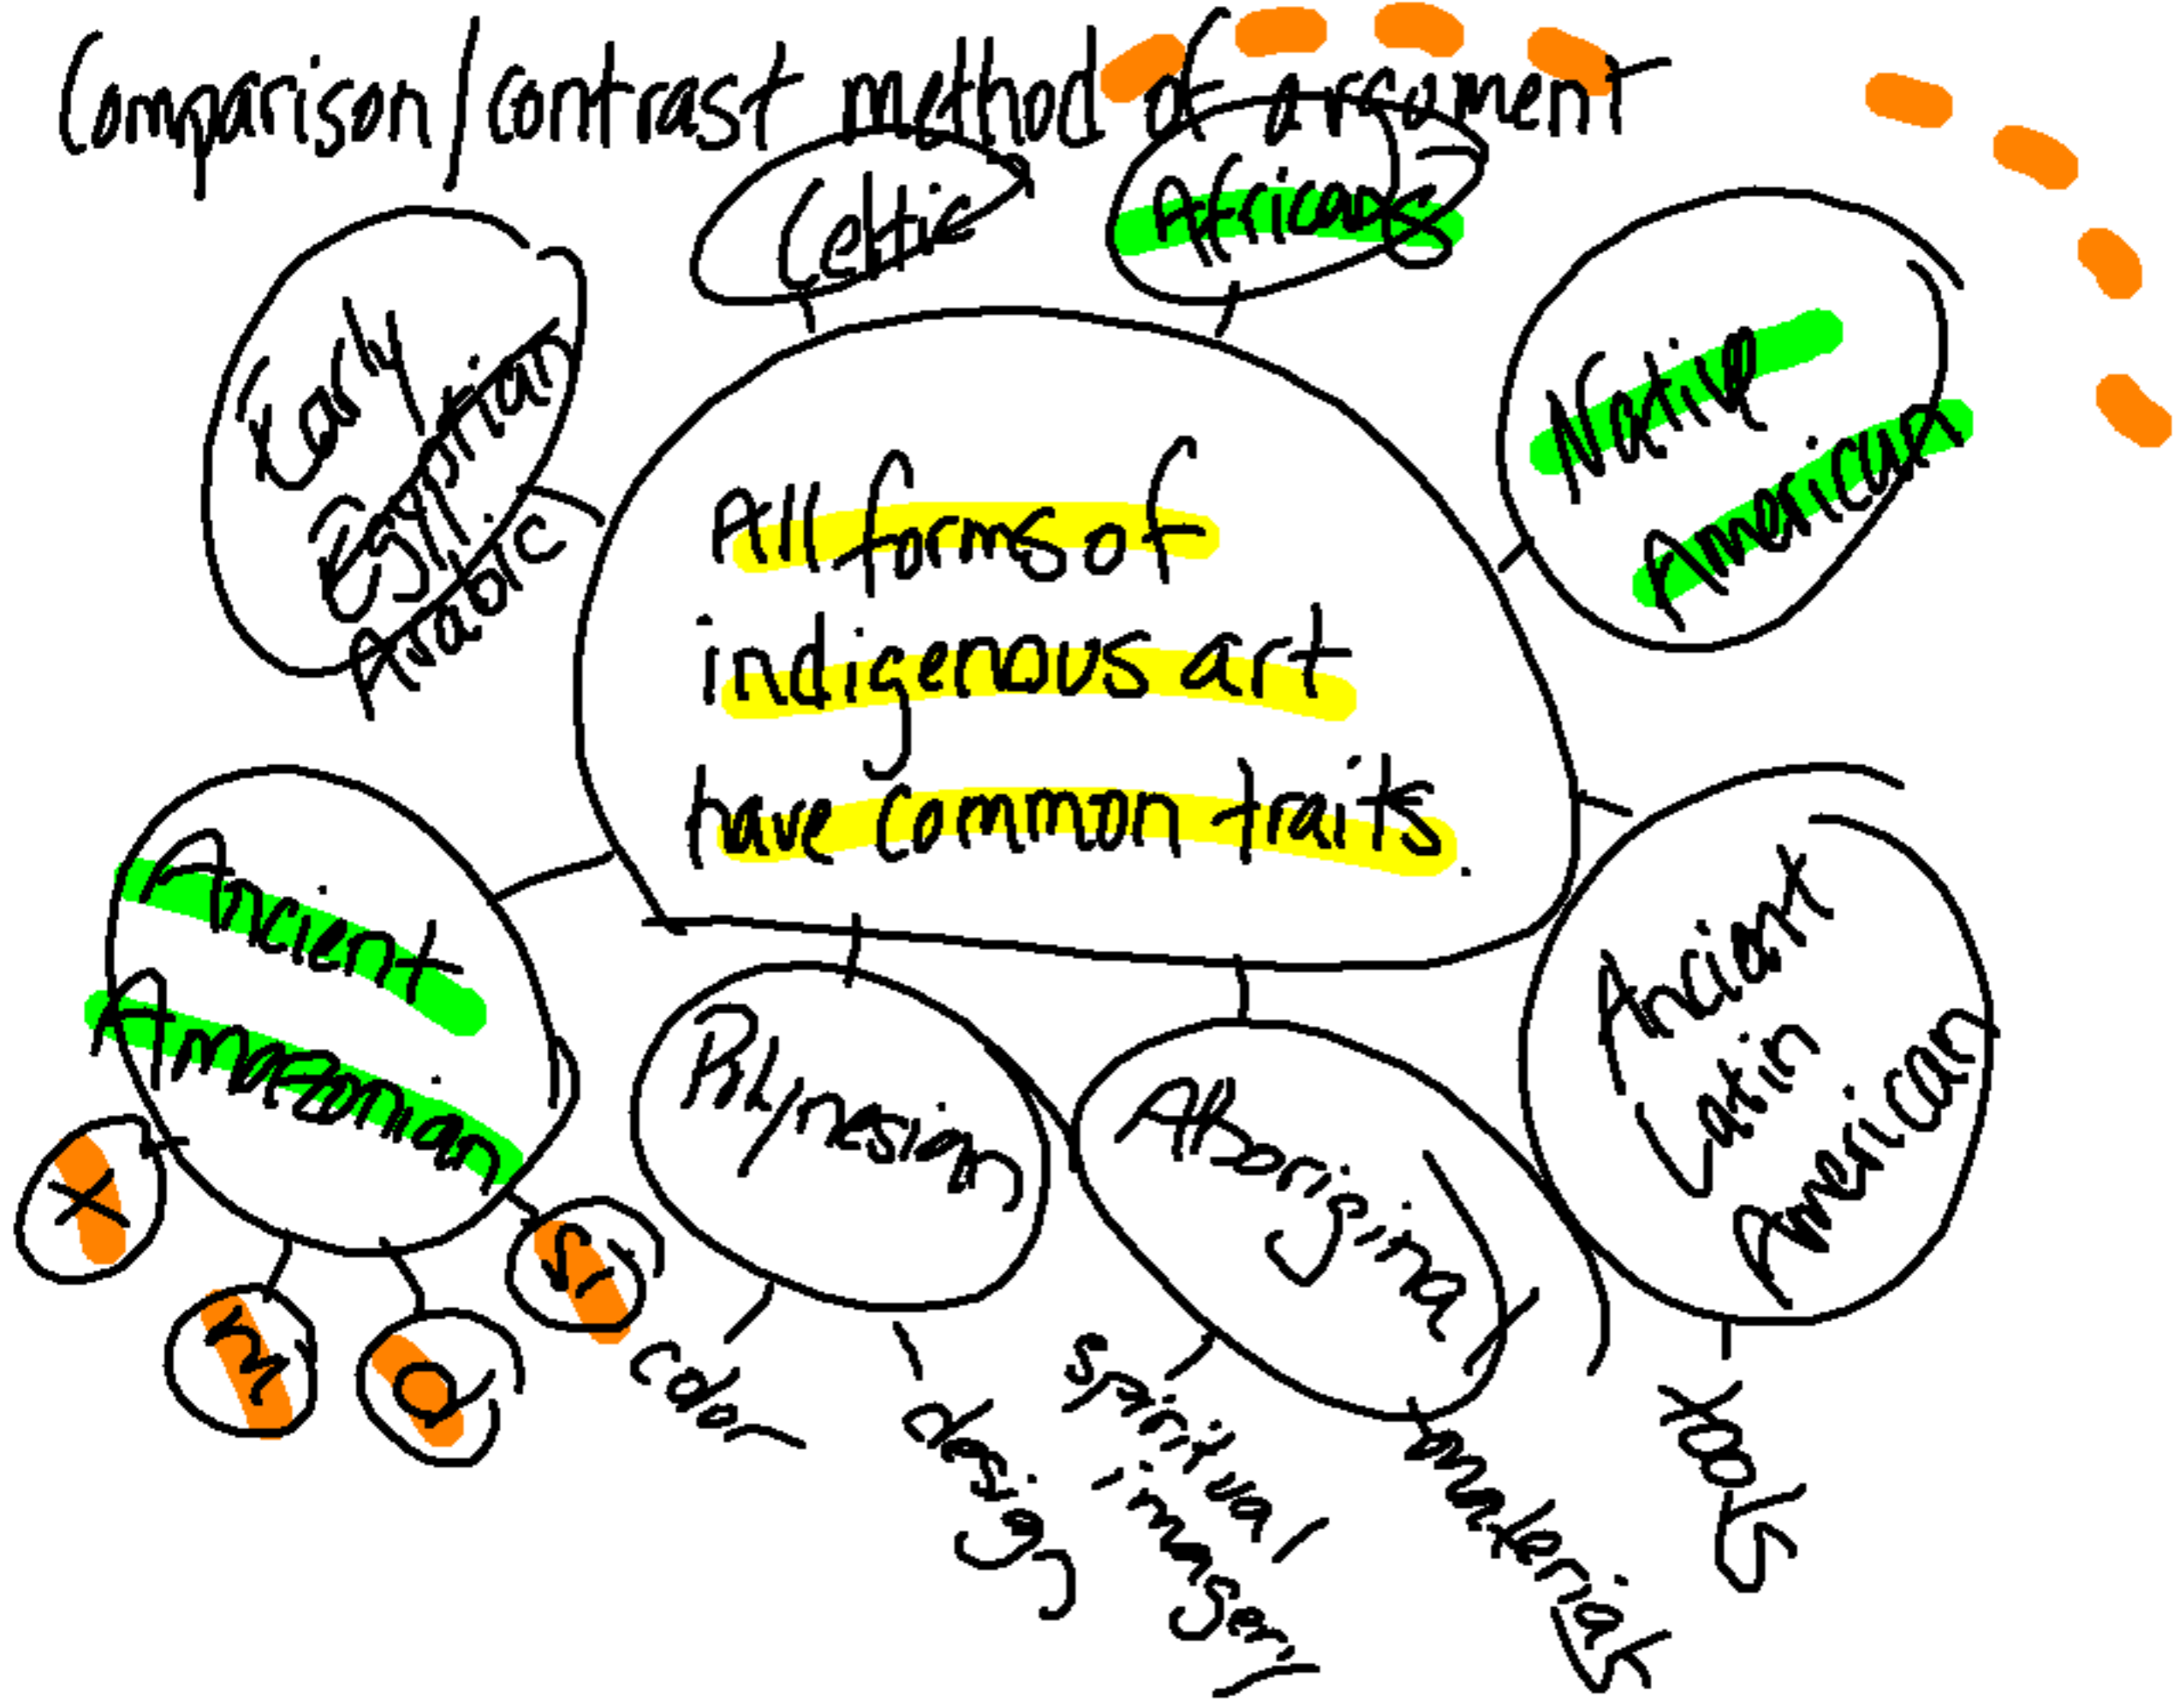 Comparison/contrast method of argument
Celtic
Africans
Early
Egyptian
Arabic
Native
American
All forms of
indigenous art
have common traits.
Ancient
Amazonian
Polynesian
Aboriginal
Ancient
Latin
American
x
m
a
color
design
spiritual
imagery
materials
tools